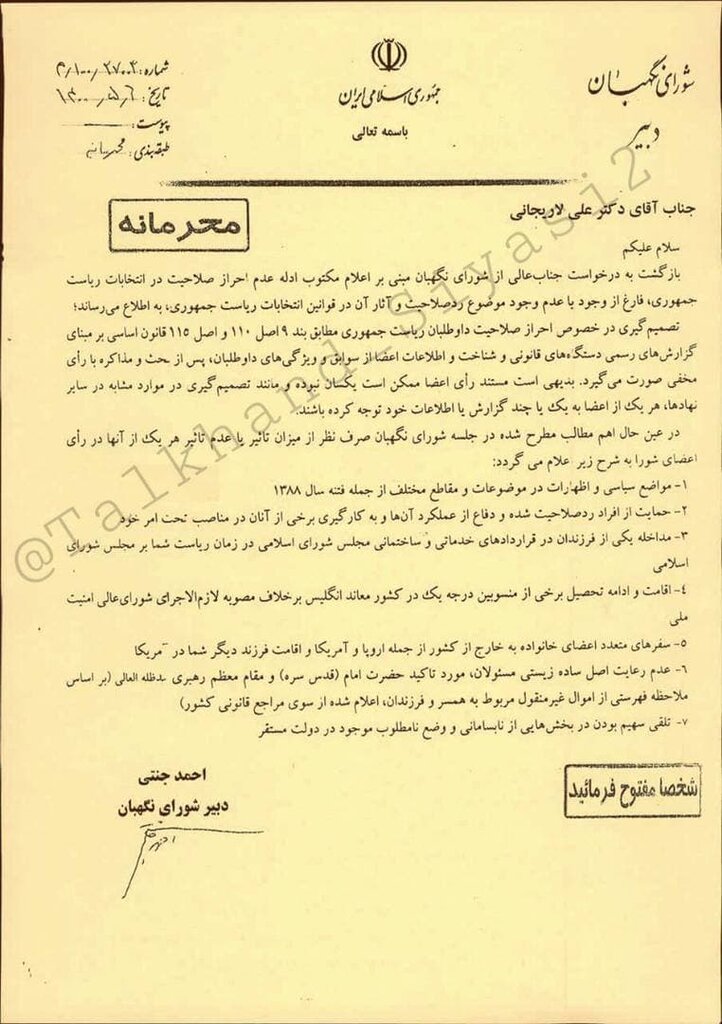 شورای نگهبان
دبیر
جمهوری اسلامی ایران
باسمه تعالی
شماره:
تاریخ:
پیوست:
طبقه‌بندی: محرمانه
محرمانه
جناب آقای دکتر علی لاریجانی
سلام علیکم
بازگشت به درخواست جنابعالی از شورای نگهبان مبنی بر اعلام مکتوب ادله عدم احراز صلاحیت در انتخابات ریاست
جمهوری، فارغ از وجود یا عدم وجود موضوع ردصلاحیت و آثار آن در قوانین انتخابات ریاست جمهوری، به اطلاع می‌رساند؛
تصمیم‌گیری در خصوص احراز صلاحیت داوطلبان ریاست جمهوری مطابق بند ۹ اصل ۱۱۰ و اصل ۱۱۵ قانون اساسی بر مبنای
گزارش‌های رسمی دستگاه‌های قانونی و شناخت و اطلاعات اعضا از سوابق و ویژگی‌های داوطلبان، پس از بحث و مذاکره با رأی
مخفی صورت می‌گیرد. بدیهی است مستند رأی اعضا ممکن است یکسان نبوده و مانند تصمیم‌گیری در موارد مشابه در سایر
نهادها، هر یک از اعضا به یک یا چند گزارش یا اطلاعات خود توجه کرده باشند.
در عین حال اهم مطالب مطرح شده در جلسه شورای نگهبان صرف نظر از میزان تأثیر یا عدم تاثیر هر یک از آنها در رأی
اعضای شورا به شرح زیر اعلام می گردد:
۱- مواضع سیاسی و اظهارات در موضوعات و مقاطع مختلف از جمله فتنه سال ۱۳۸۸
۲- حمایت از افراد ردصلاحیت شده و دفاع از عملکرد آن‌ها و به کارگیری برخی از آنان در مناصب تحت امر خود
۳- مداخله یکی از فرزندان در قراردادهای خدماتی و ساختمانی مجلس شورای اسلامی در زمان ریاست شما بر مجلس شورای
اسلامی
۴- اقامت و ادامه تحصیل برخی از منسوبین درجه یک در کشور معاند انگلیس برخلاف مصوبه لازم‌الاجرای شورای‌عالی امنیت
ملی
۵- سفرهای متعدد اعضای خانواده به خارج از کشور از جمله اروپا و آمریکا و اقامت فرزند دیگر شما در آمریکا
۶- عدم رعایت اصل ساده زیستی مسئولان، مورد تاکید حضرت امام (قدس سره) و مقام معظم رهبری مدظله العالی (بر اساس
ملاحظه فهرستی از اموال غیرمنقول مربوط به همسر و فرزندان، اعلام شده از سوی مراجع قانونی کشور)
۷- تلقی سهیم بودن در بخش‌هایی از نابسامانی و وضع نامطلوب موجود در دولت مستقر
احمد جنتی
دبیر شورای نگهبان
شخصا مفتوح فرمائید
@Talkhand_Siyasi2